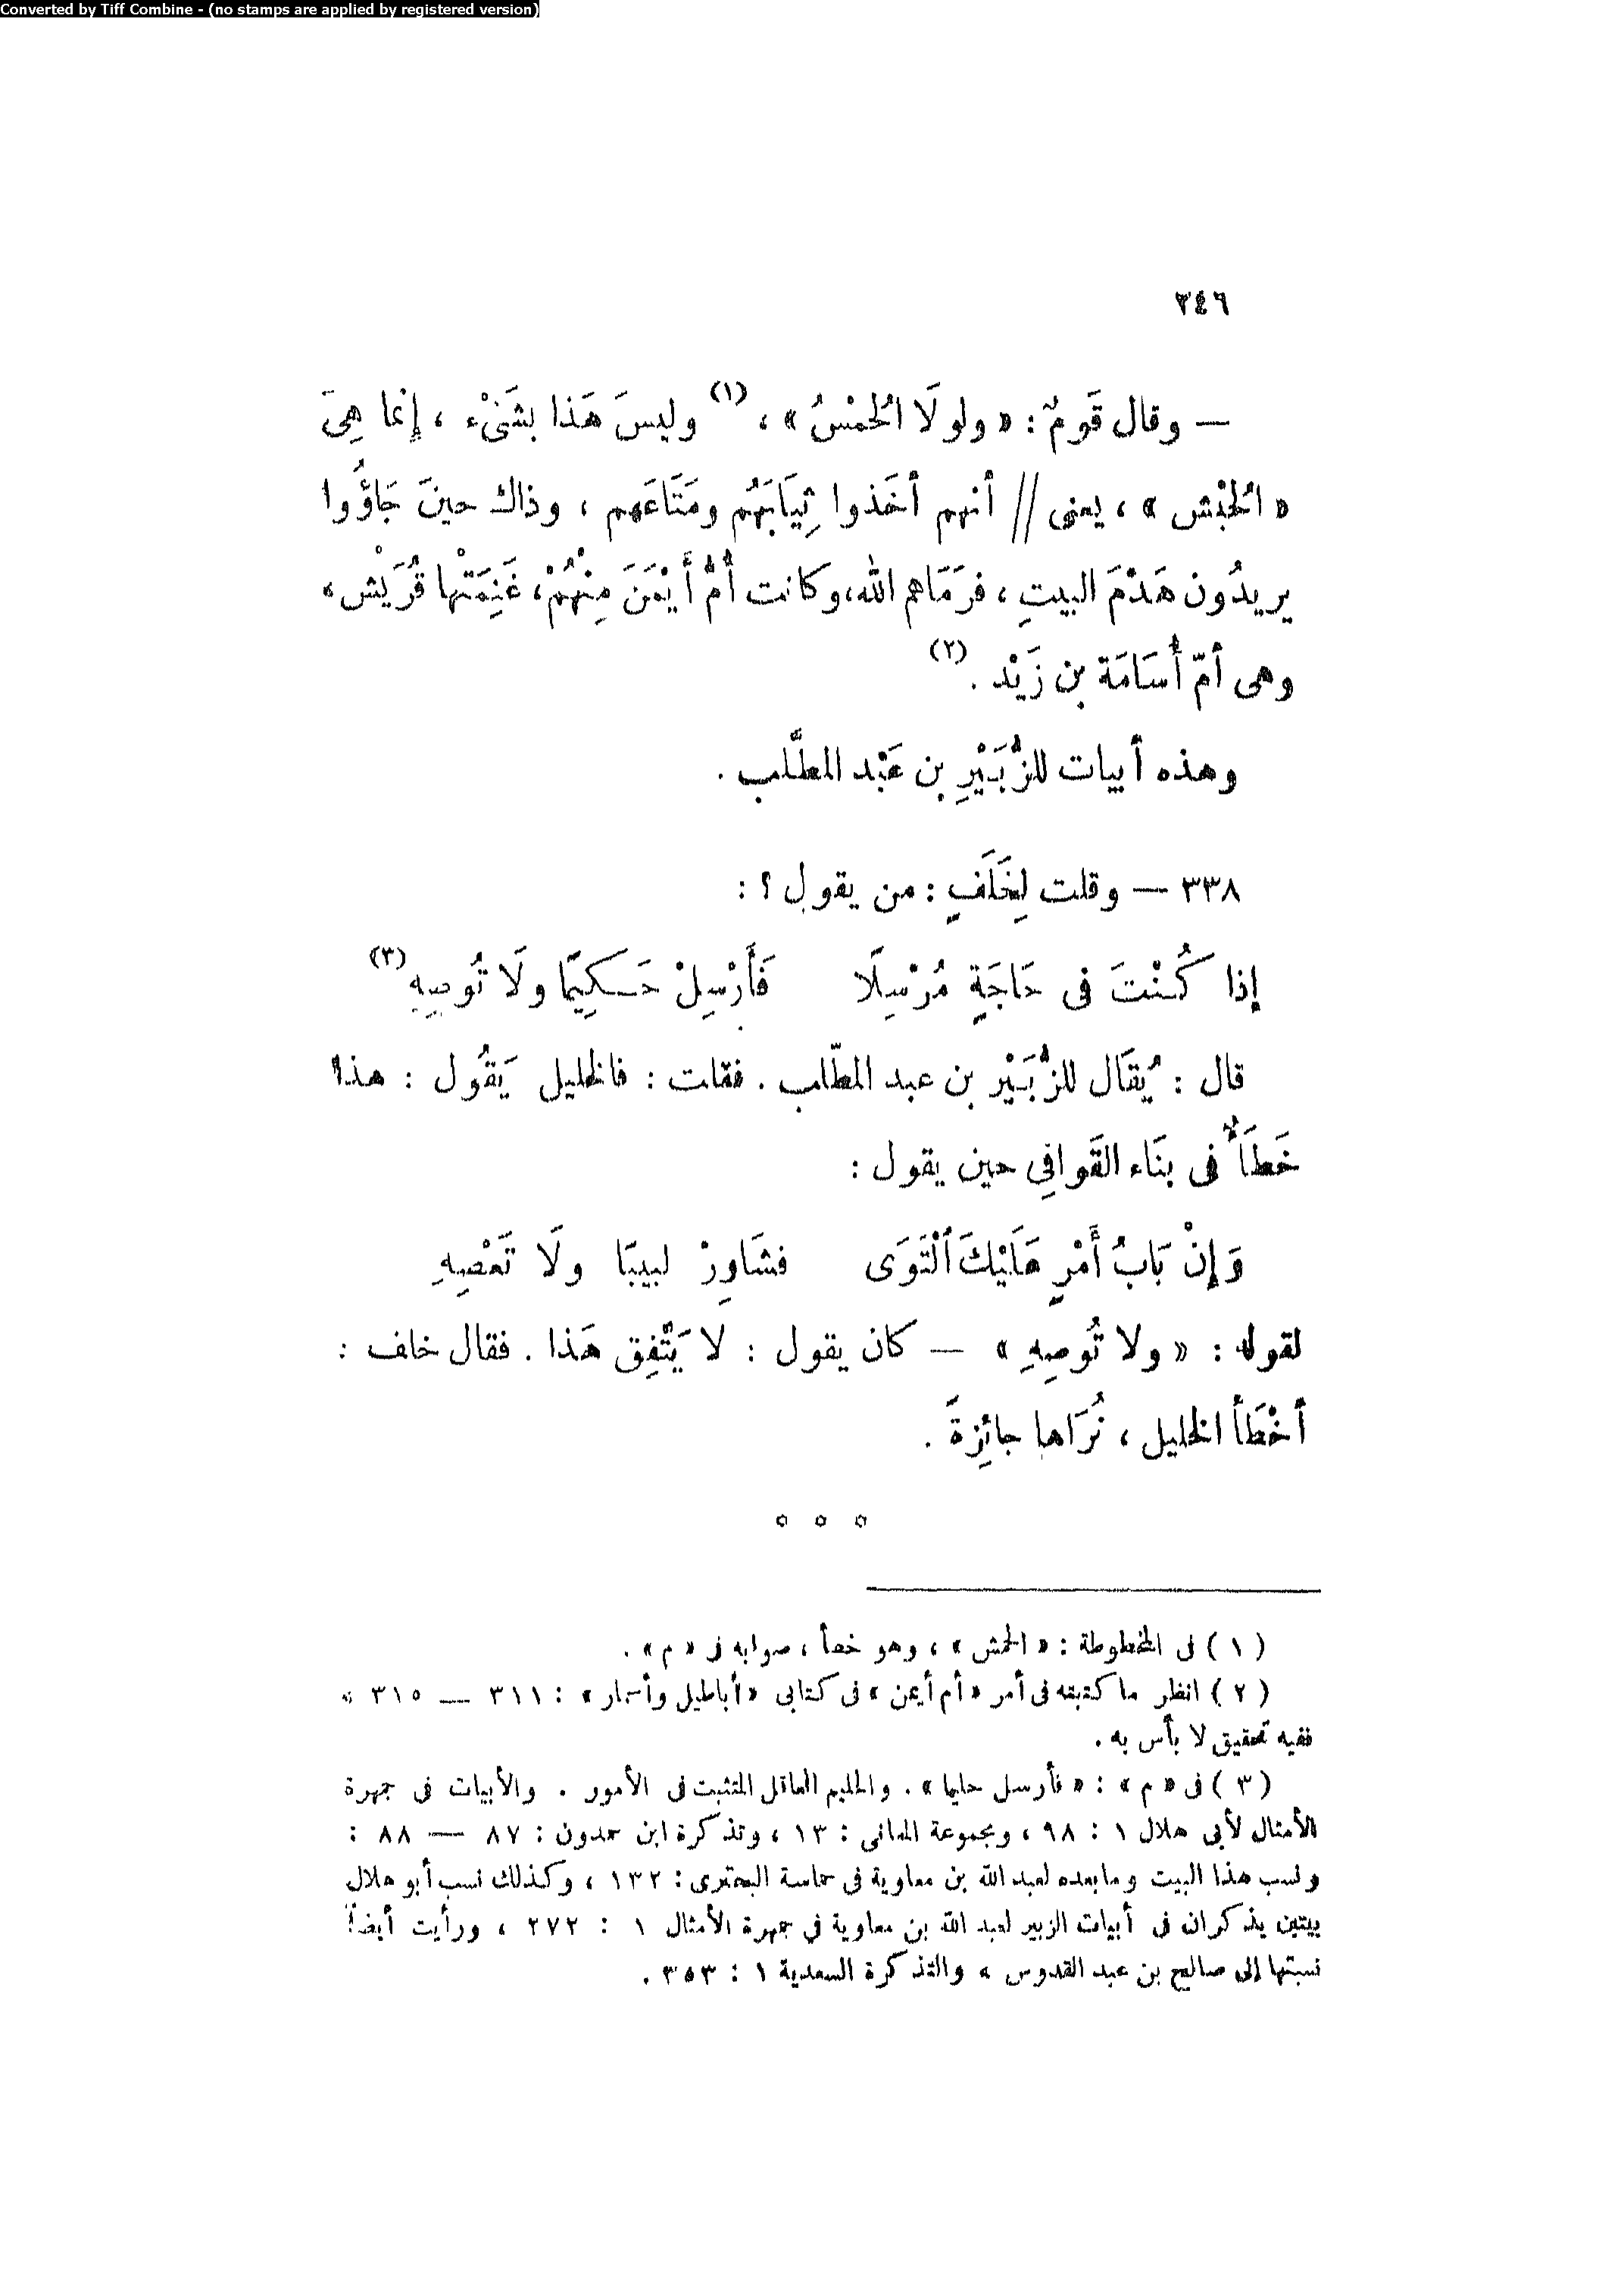 Converted by Tiff Combine - (no stamps are applied by registered version)
٢٤٦
— وقال قَومٌ : « ولولَا الحُمْسُ » ، (١) وليسَ هَذا بشَىْء ، إنما هِىَ
« الحُبْش » ، يعنى // أنهم أخَذوا ثِيَابَهُم ومَتَاعَهم ، وذاك حينَ جَاؤُوا
يريدُون هَدْمَ البيتِ ، فرَمَاهم الله، وكانت أُمُّ أَيْمَنَ مِنْهُمْ، غَنِمَتْها قُرَيْش،
وهى أمّ أُسَامَة بن زَيْد . (٢)
وهذه أبيات للزُّبَيْرِ بن عَبْد المطَّلب .
٣٣٨ — وقلت لِخَلَفٍ : من يقول ؟ :
إذا كُنْتَ فى حَاجَةٍ مُرْسِلًا فَأَرْسِلْ حَكِيمًا ولَا تُوصِهِ (٣)
قال : يُقَال للزُّبَيْر بن عبد المطّلب . فقلت : فالخليل يَقُول : هذا
خَطَأٌ فى بنَاء القَوافِى حين يقول :
وَإِنْ بَابُ أَمْرٍ عَلَيْكَ ٱلْتَوَى فشَاوِرْ لبيبًا ولَا تَعْصِهِ
لقوله : « ولا تُوصِهِ » — كان يقول : لا يَتَّفِق هَذا . فقال خلف :
أخْطَأ الخليل ، نُرَاها جائِزةً .
(١) فى المخطوطة : « الحمش » ، وهو خطأ ، صوابه فى « م » .
(٢) انظر ما كتبته فى أمر « أم أيمن » فى كتابى « أباطيل وأسمار » : ٣١١ — ٣١٥ ،
ففيه تحقيق لا بأس به .
(٣) فى « م » : « فأرسل حليما » . والحليم العاقل المتثبت فى الأمور . والأبيات فى جمهرة
الأمثال لأبى هلال ١ : ٩٨ ، ومجموعة المعانى : ١٣ ، وتذكرة ابن حمدون : ٨٧ — ٨٨ :
ونسب هذا البيت وما بعده لعبد الله بن معاوية فى حماسة البحترى : ١٣٢ ، وكذلك نسب أبو هلال
بيتين يذكران فى أبيات الزبير لعبد الله بن معاوية في جمهرة الأمثال ١ : ٢٧٢ ، ورأيت أيضاً
نسبتها إلى صالح بن عبد القدوس ، والتذكرة السعدية ١ : ٣٥٣ .